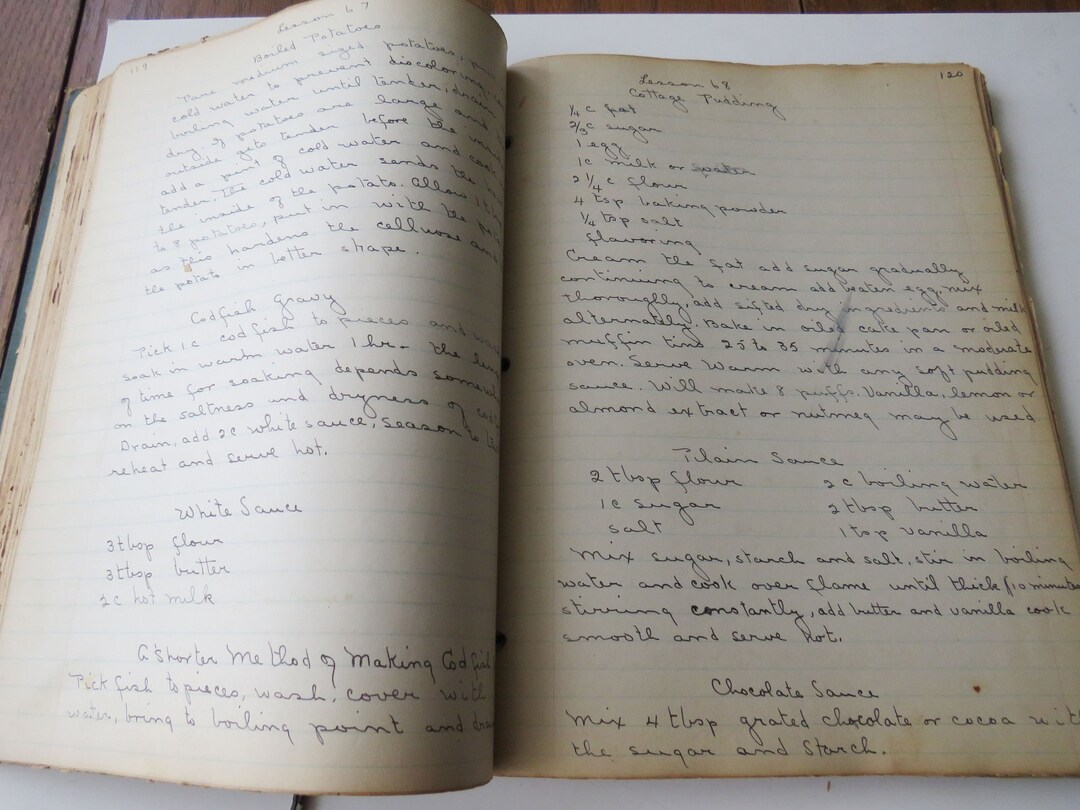 119
Lesson 67
Boiled Potatoes
Pare medium sized potatoes,
cold water to prevent discoloring
boiling water until tender, drain
dry. If potatoes are large and
outside gets tender before the
add a pint of cold water and cook
tender. The cold water sends the
the inside of the potato. Allow 1 t
to 8 potatoes, put in with the
as this hardens the cellulose and
the potato in better shape.
Codfish Gravy
Pick 1c codfish to pieces and
soak in warm water 1 hr. the
of time for soaking depends
on the saltness and dryness of
Drain, add 2c white sauce, season to
reheat and serve hot.
White Sauce
3 tbsp flour
3 tbsp butter
2c hot milk
A Shorter Method of Making Codfish
Pick fish to pieces, wash, cover with
water, bring to boiling point and
120
Lesson 68
Cottage Pudding
1/4 c fat
2/3 c sugar
1 egg
1c milk or water
2 1/4 c flour
4 tsp baking powder
1/4 tsp salt
flavoring
Cream the fat add sugar gradually
continuing to cream add beaten egg, mix
thoroughly, add sifted dry ingredients and milk
alternately. Bake in oiled cake pan or oiled
muffin tins 25 to 35 minutes in a moderate
oven. Serve warm with any soft pudding
sauce. Will make 8 puffs. Vanilla, lemon or
almond extract or nutmeg may be used
Plain Sauce
2 tbsp flour 2 c boiling water
1c sugar 2 tbsp butter
salt 1 tsp vanilla
Mix sugar, starch and salt, stir in boiling
water and cook over flame until thick (10 minutes
stirring constantly, add butter and vanilla cook
smooth and serve hot.
Chocolate Sauce
Mix 4 tbsp grated chocolate or cocoa with
the sugar and starch.